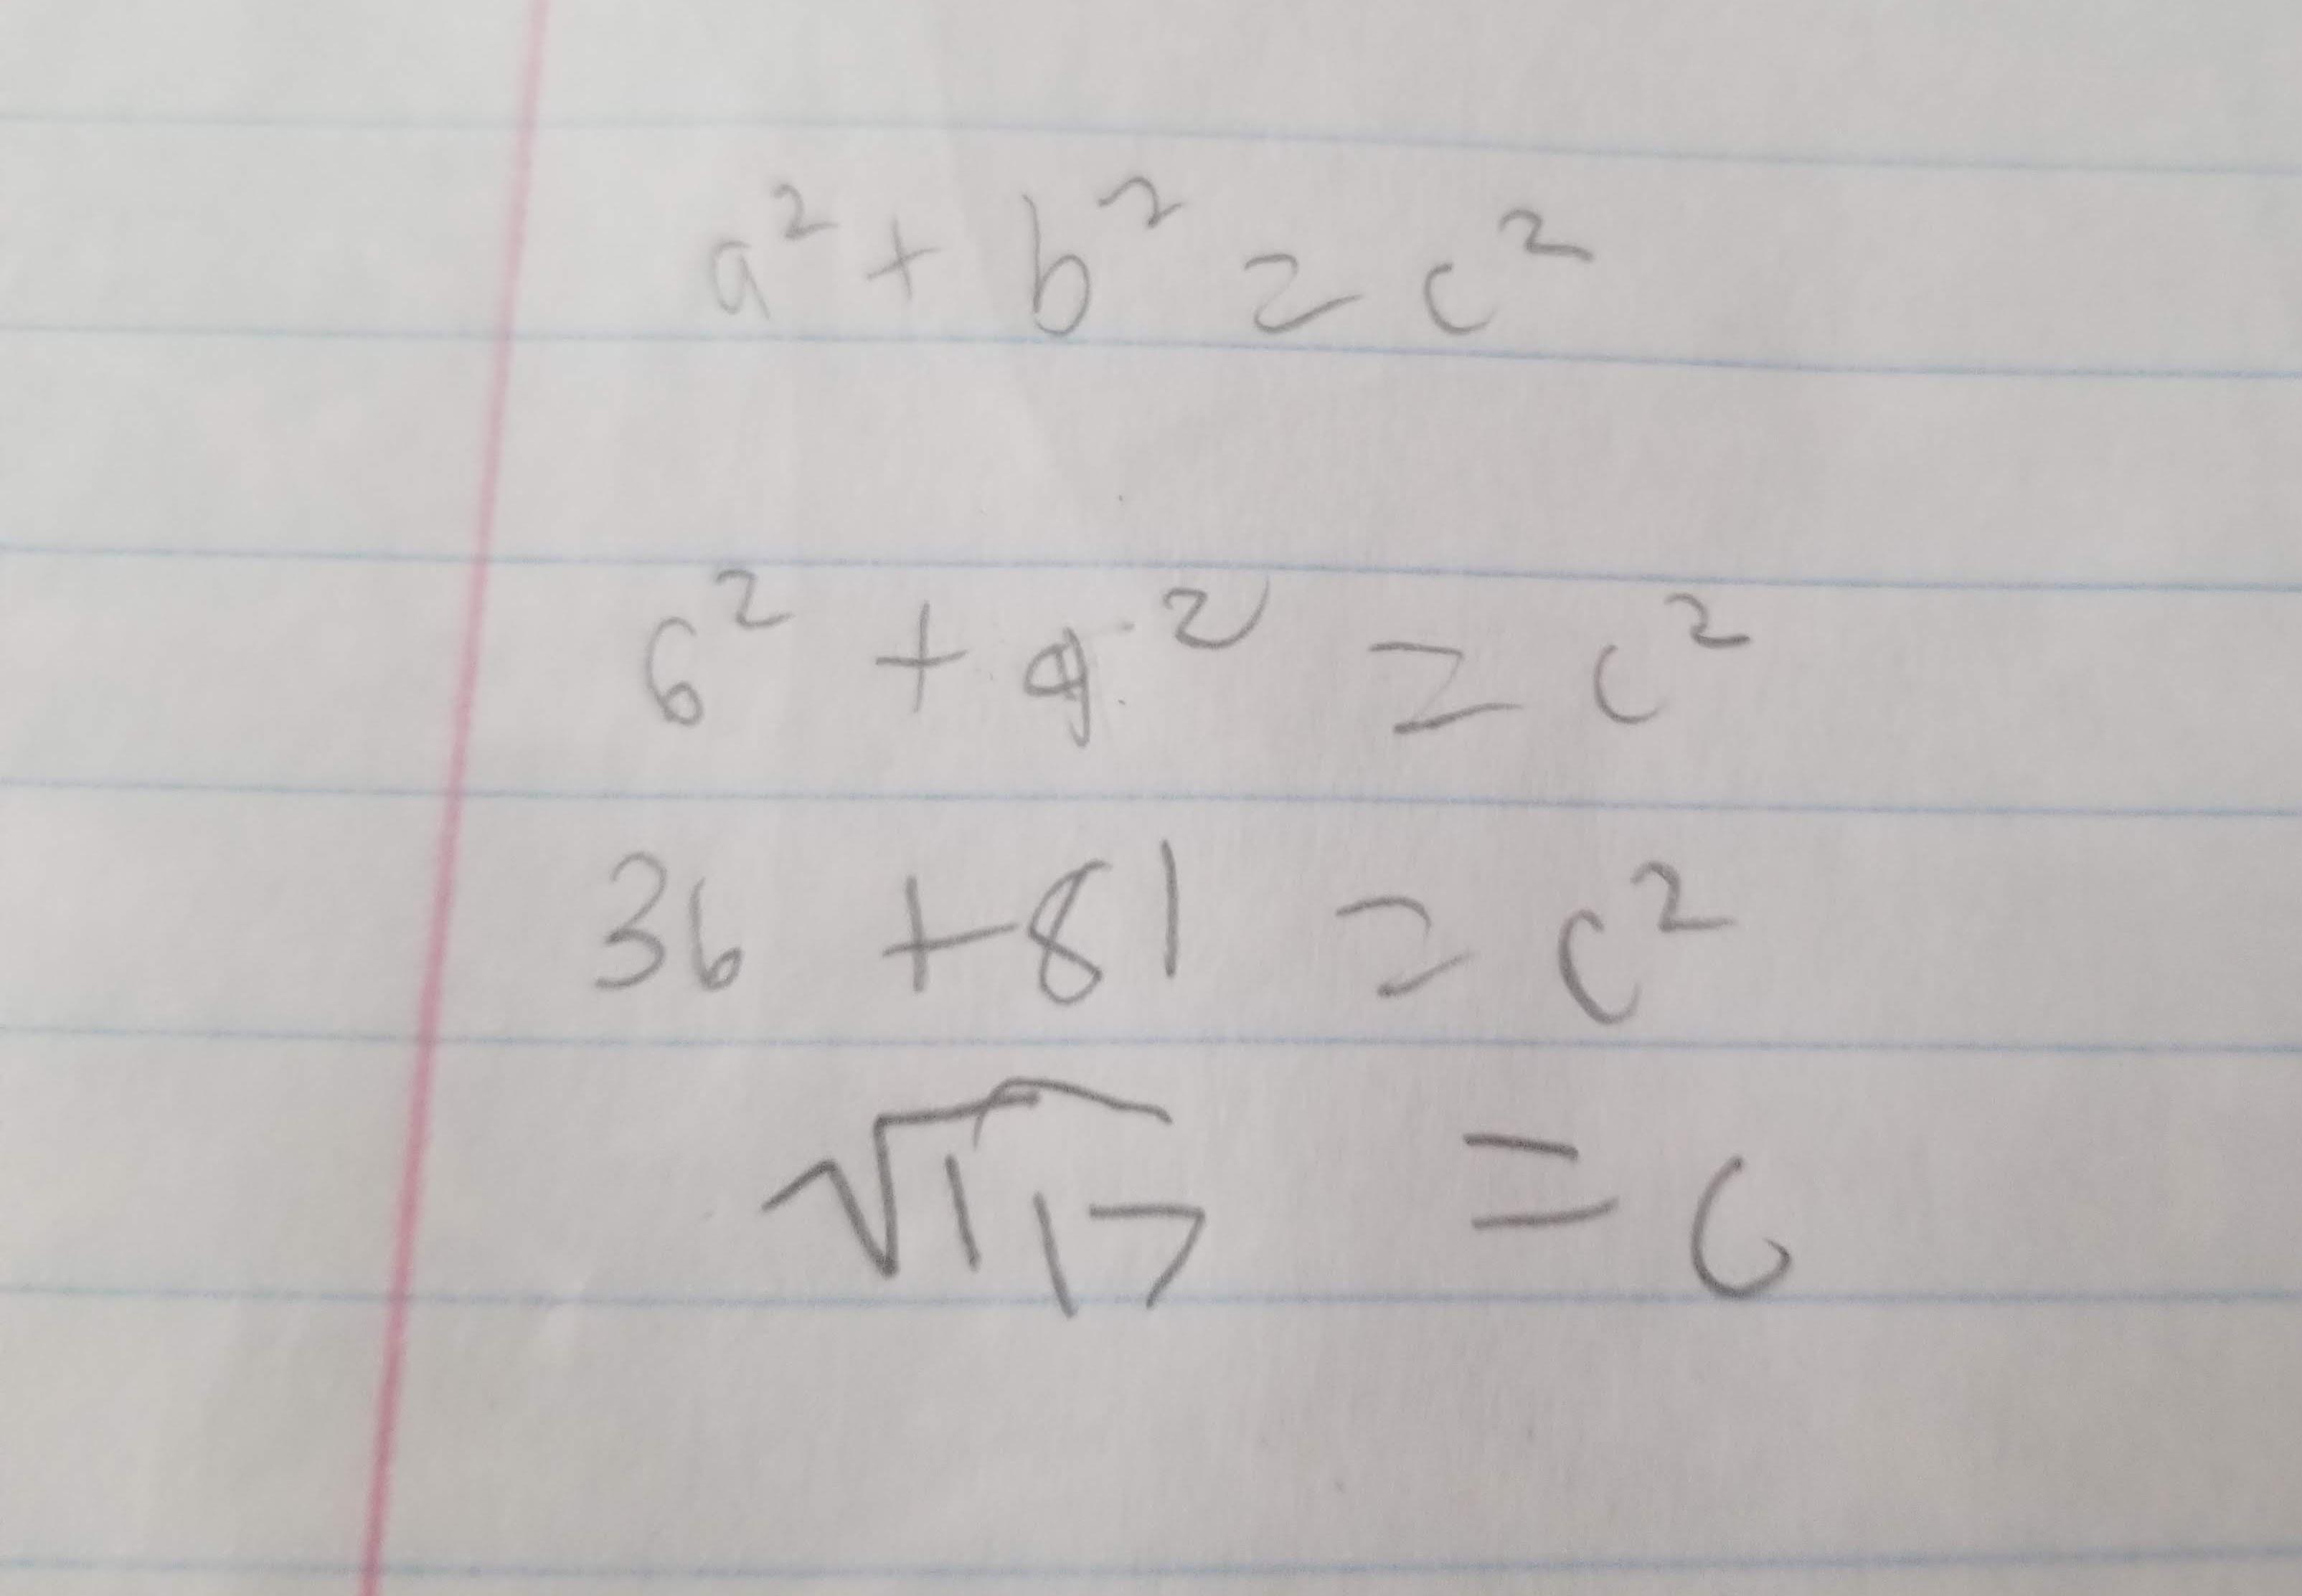 a² + b² = c²
6² + 9² = c²
36 + 81 = c²
√117 = c